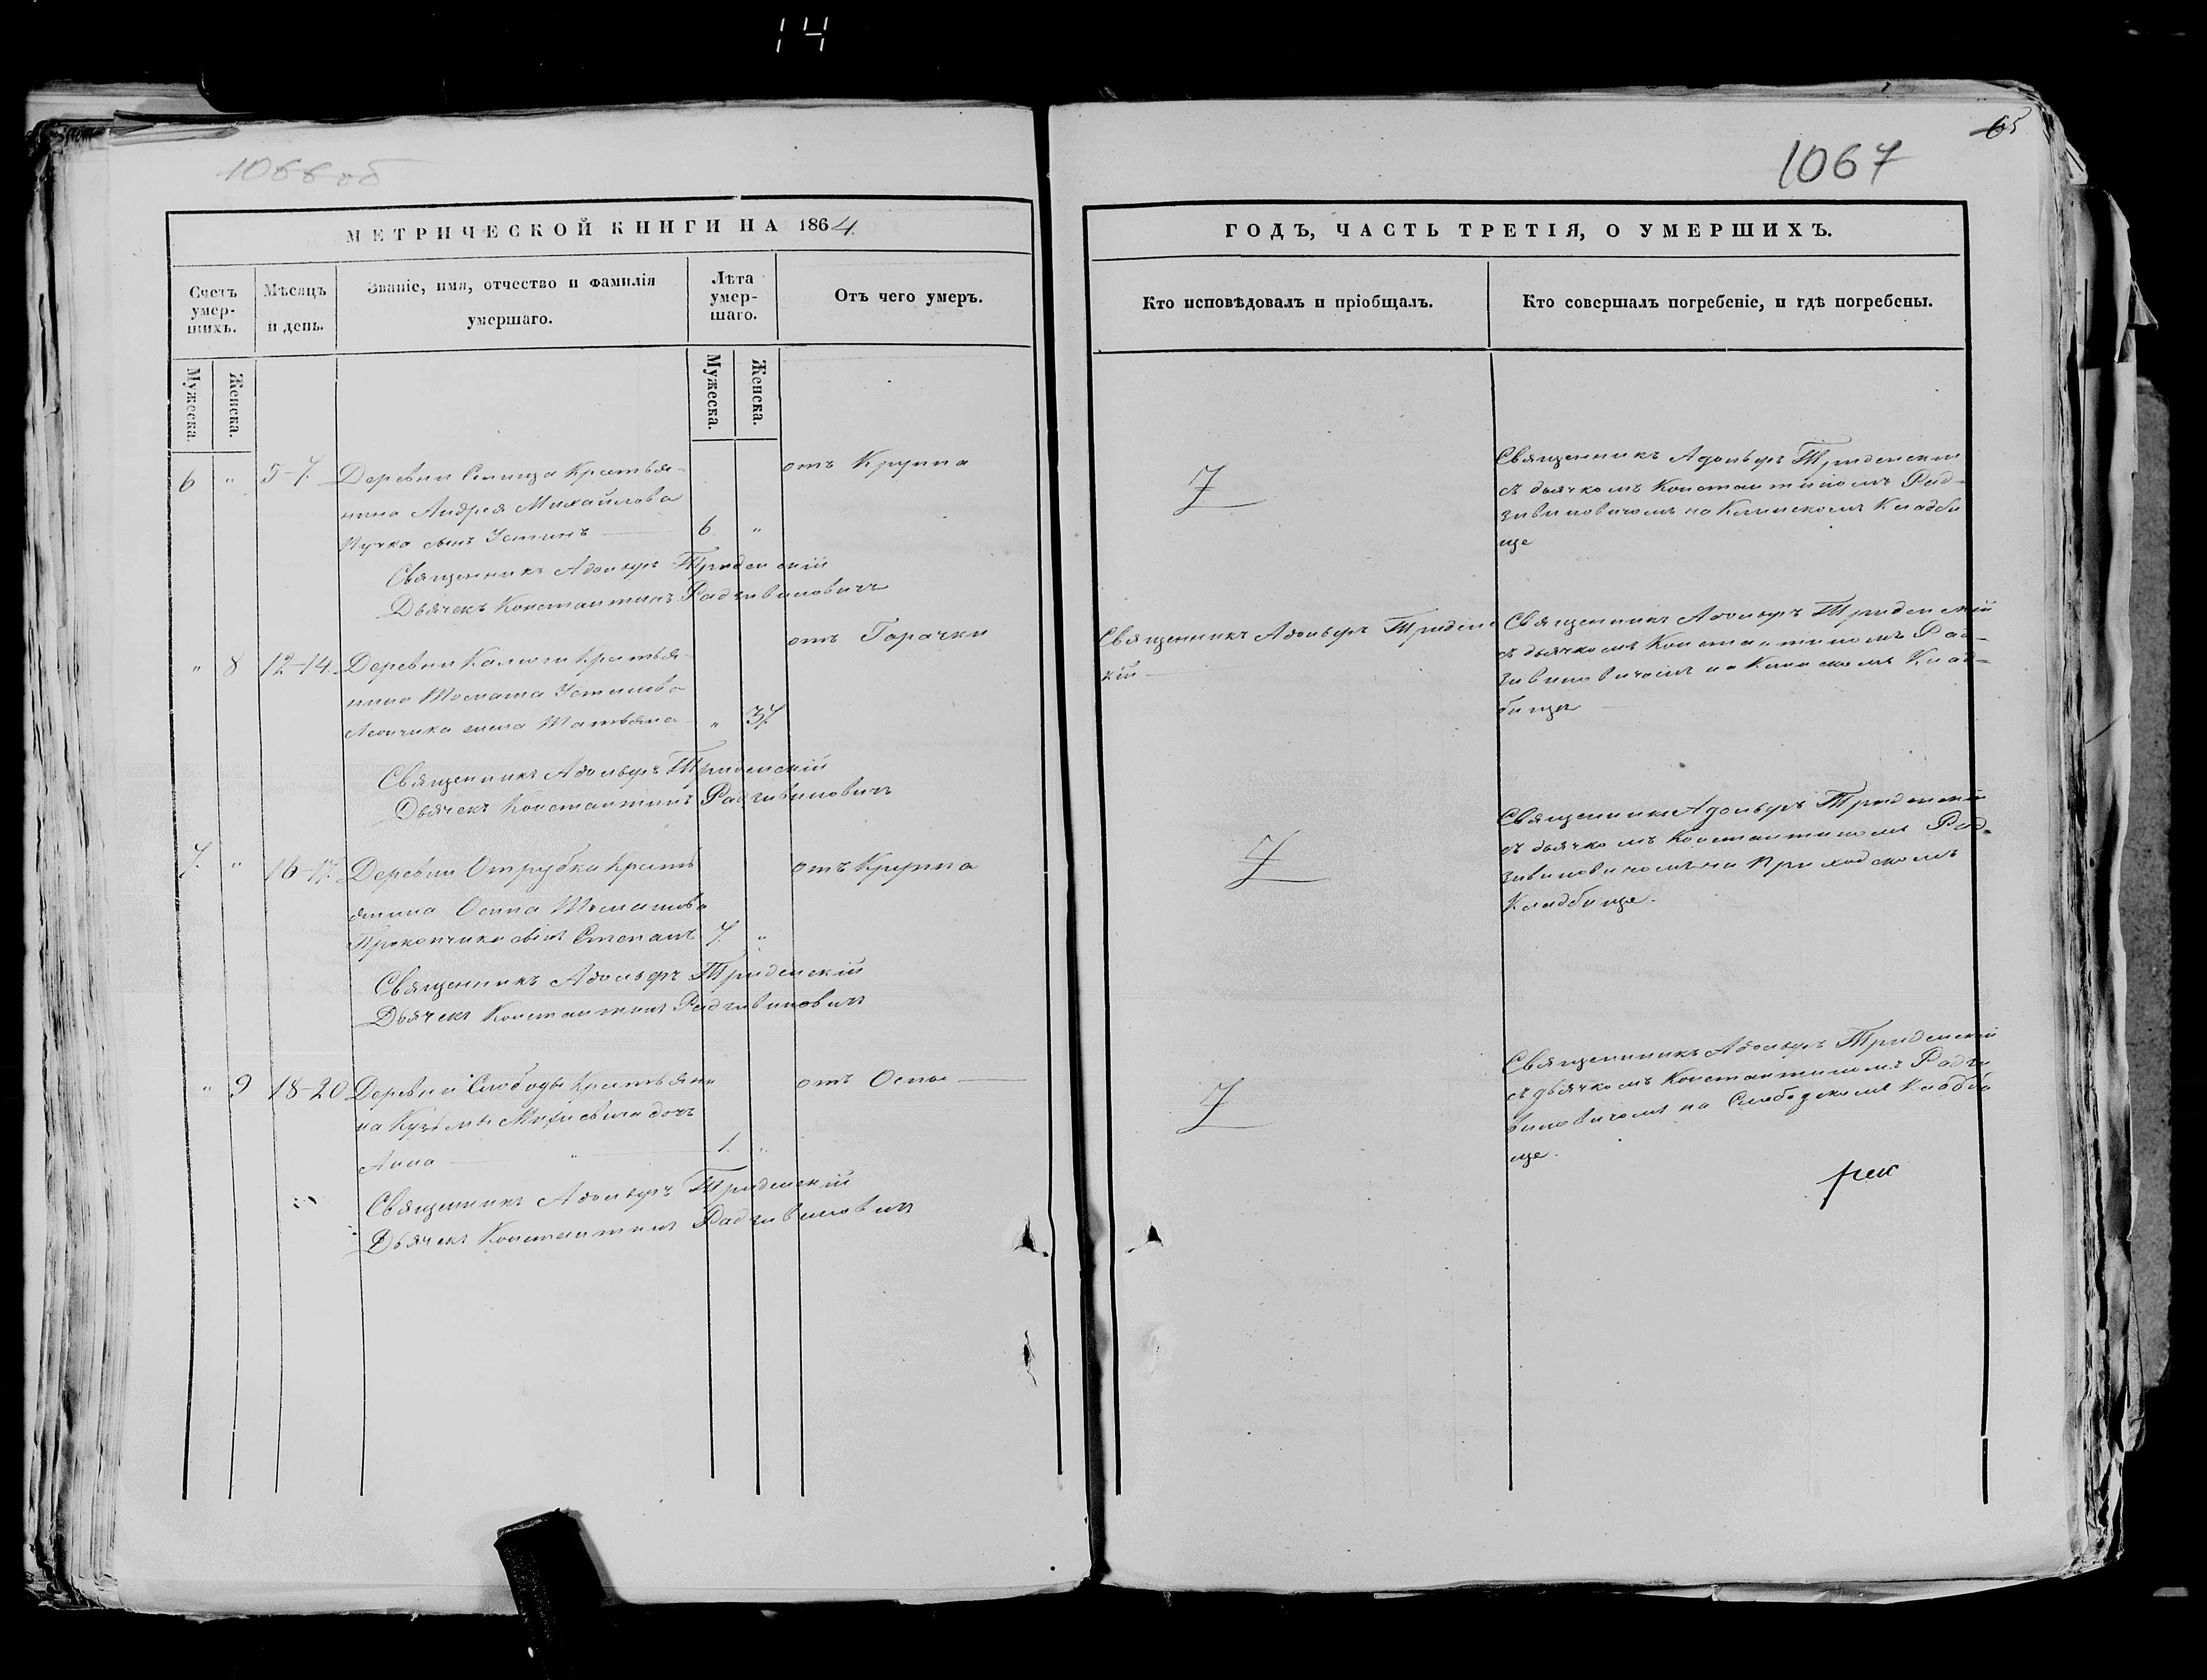 14
1066 об
65
1067
МЕТРИЧЕСКОЙ КНИГИ НА 1864
ГОДЪ, ЧАСТЬ ТРЕТІЯ, О УМЕРШИХЪ.
Счетъ умер-шихъ.
Мѣсяцъ и день.
Званіе, имя, отчество и фамилія умершаго.
Лѣта умер-шаго.
Отъ чего умеръ.
Кто исповѣдовалъ и пріобщалъ.
Кто совершалъ погребеніе, и гдѣ погребены.
Мужеска.
Женска.
Мужеска.
Женска.
6 " 5-7. Деревни Крестья-
нина Андрея Михайлова
сынъ Устинъ 6 "
отъ Крупа
Священникъ Адольфъ Триденскій
Дьячекъ Константинъ Радзивиновичъ
Священникъ Адольфъ Триденскій
съ дьячкомъ Константиномъ Рад-
зивиновичомъ на Кладби
ще
" 8 12-14. Деревни Калюги Крестья-
нина Устинова
жена Татьяна " 37.
отъ Горачки
Священникъ Адольфъ Триденскій
Дьячекъ Константинъ Радзивиновичъ
Священникъ Адольфъ Триденс
кій
Священникъ Адольфъ Триденскій
съ дьячкомъ Константиномъ Рад-
зивиновичомъ на Клад-
бище
7. " 16-17. Деревни Отрубка Кресть
янина Осипа
Прокопчика сынъ Степанъ 7. "
отъ Крупа
Священникъ Адольфъ Триденскій
Дьячекъ Константинъ Радзивиновичъ
Священникъ Адольфъ Триденскій
съ дьячкомъ Константиномъ Рад-
зивиновичомъ на Приходскомъ
Кладбище.
" 9 18-20 Деревни Слободы Крестьяни
на Кузьмы дочь
Анна " 1. "
отъ Оспы
Священникъ Адольфъ Триденскій
Дьячекъ Константинъ Радзивиновичъ
Священникъ Адольфъ Триденскій
съ дьячкомъ Константиномъ Радзи
виновичомъ на Слободскомъ Кладби
ще.